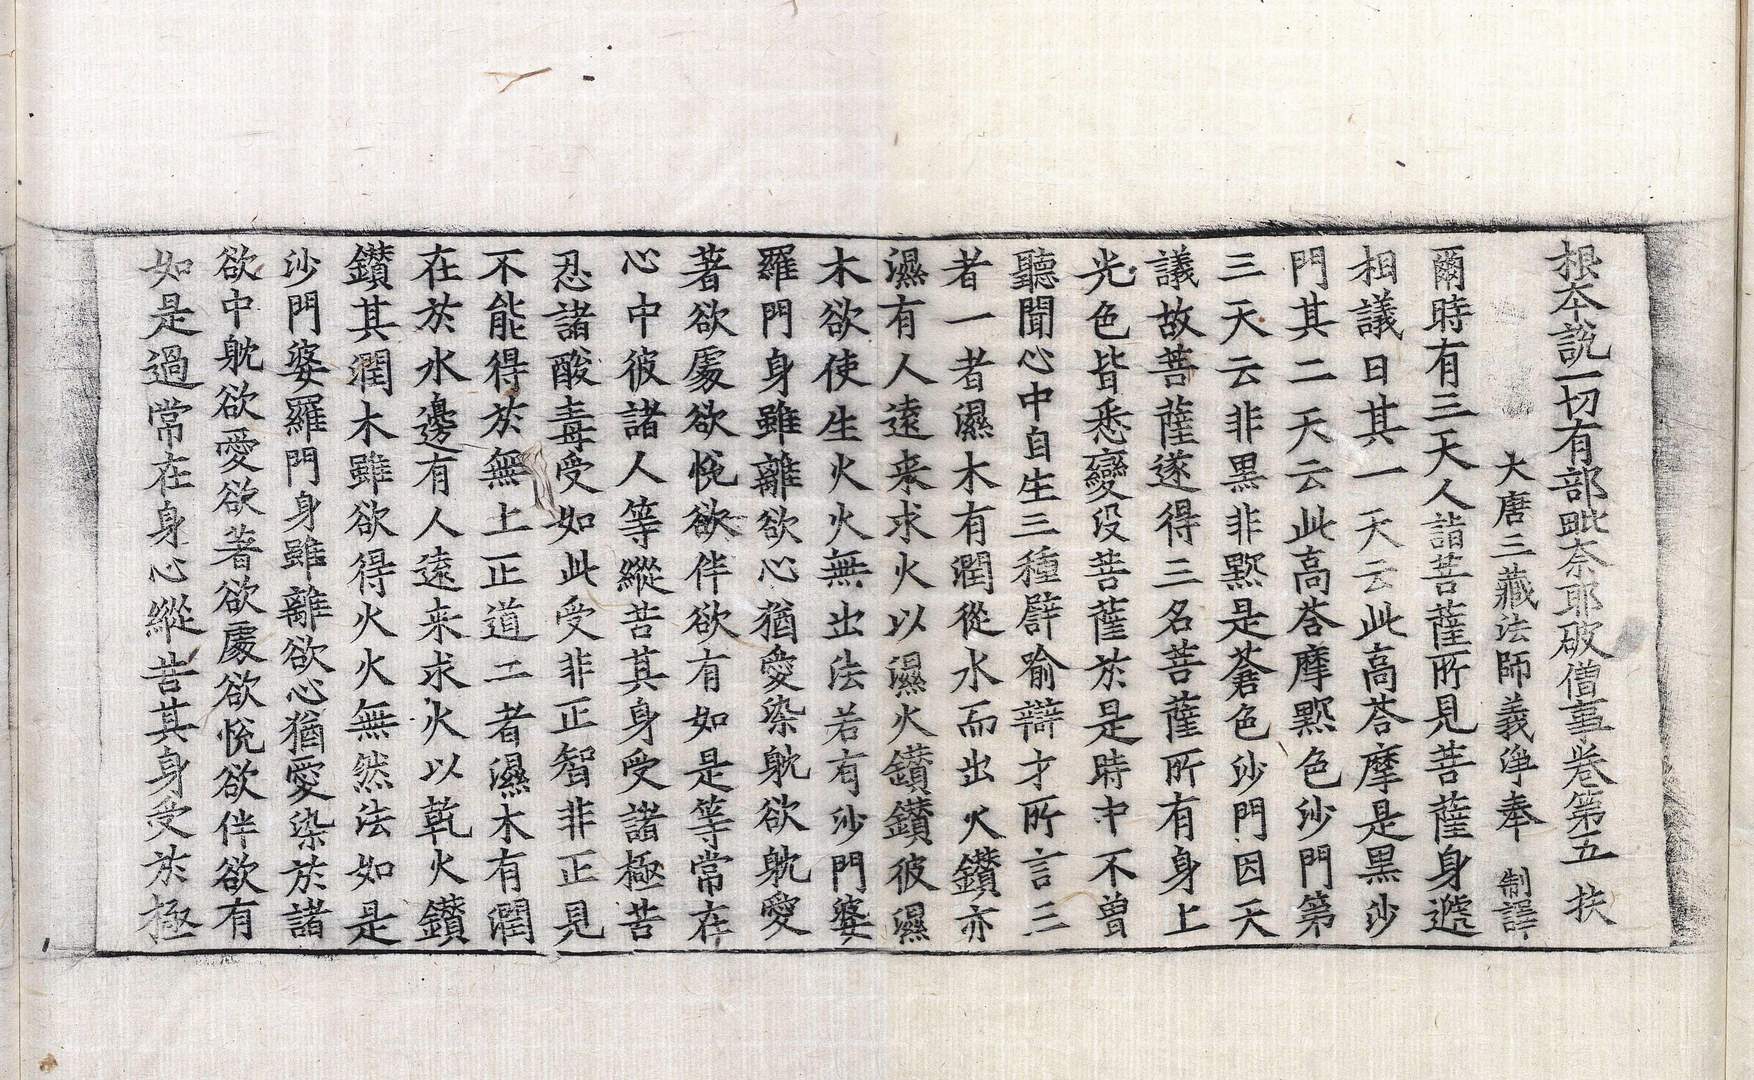 根本說一切有部毗奈耶破僧事卷第五　扶
大唐三藏法師義淨奉　制譯
爾時有三天人詣菩薩所見菩薩身遞
相議曰其一天云此高荅摩是黑沙
門其二天云此高荅摩黙色沙門第
三天云非黒非黙是蒼色沙門因天
議故菩薩遂得三名菩薩所有身上
光色皆悉變没菩薩於是時中不曾
聽聞心中自生三種譬喻辯才所言三
者一者濕木有潤從水而出火鑚亦
濕有人遠来求火以濕火鑚鑚彼濕
木欲使生火火無出法若有沙門婆
羅門身雖離欲心猶愛染躭欲躭愛
著欲處欲悅欲伴欲有如是等常在
心中彼諸人等縱苦其身受諸極苦
忍諸酸毒受如此受非正智非正見
不能得於無上正道二者濕木有潤
在於水邊有人遠来求火以乾火鑚
鑚其潤木雖欲得火火無然法如是
沙門婆羅門身雖離欲心猶愛染於諸
欲中躭欲愛欲著欲處欲悅欲伴欲有
如是過常在身心縱苦其身受於極